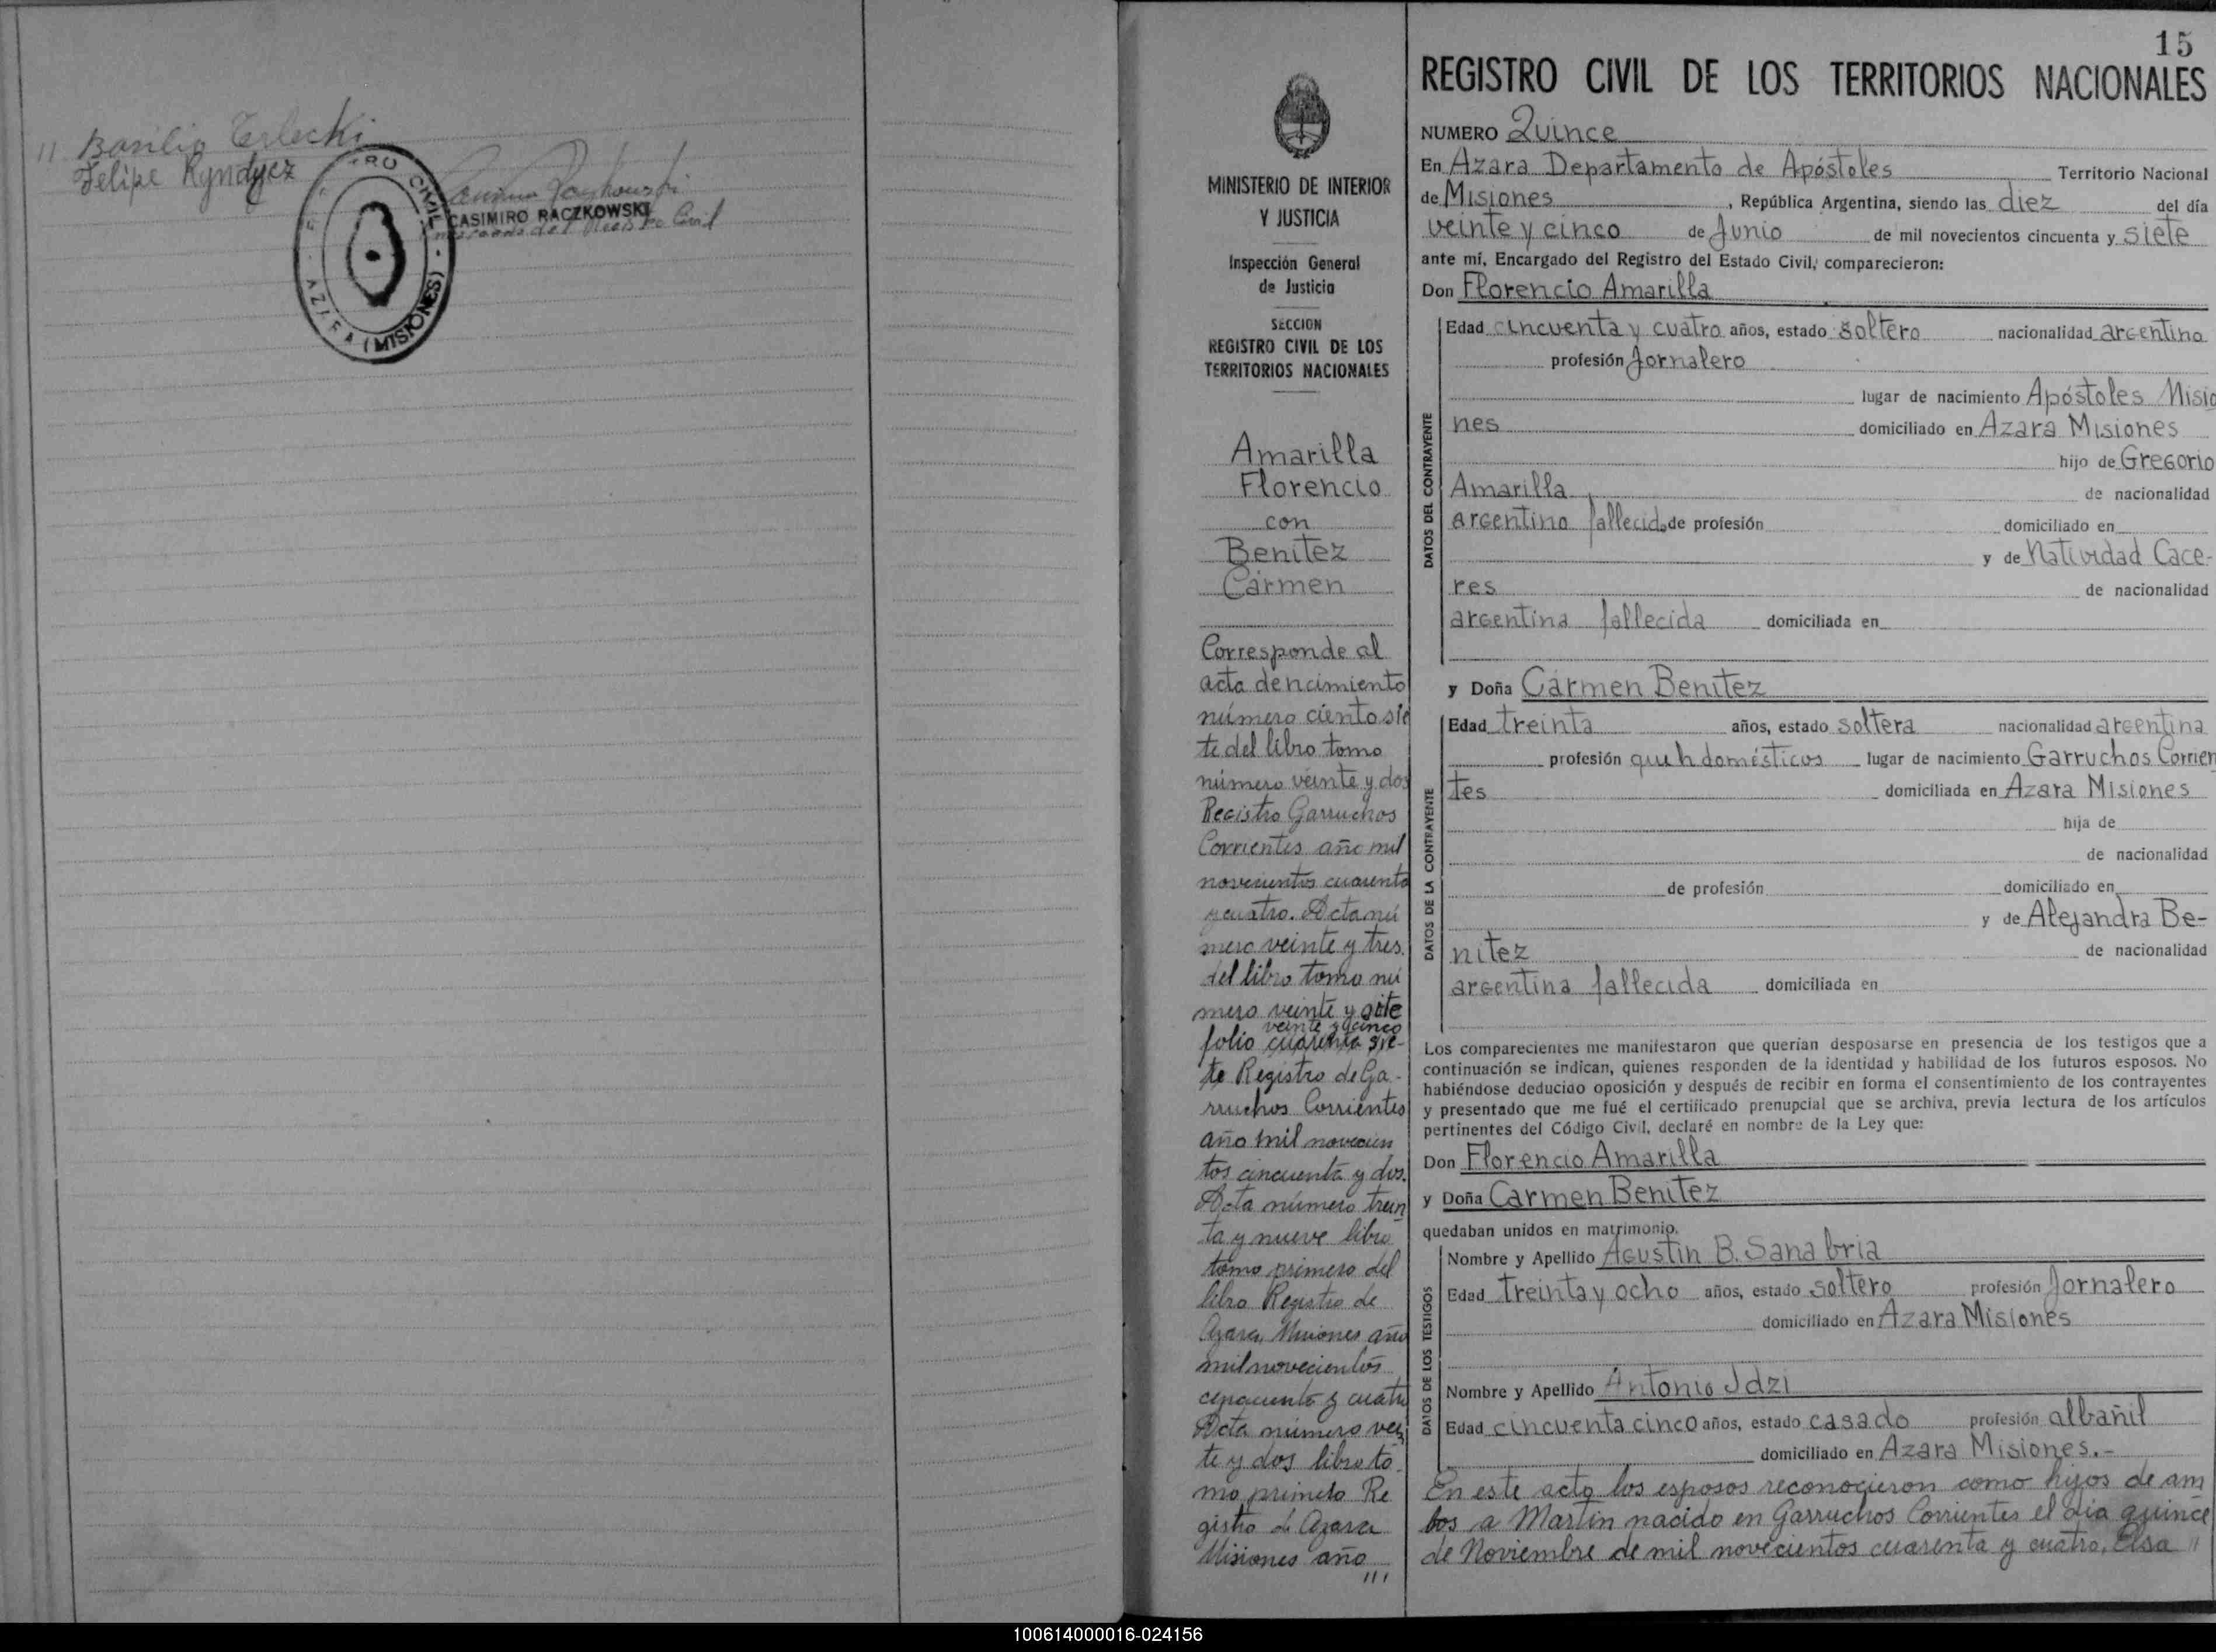 11 Basilio Terlecki
Felipe Ryndycz
CASIMIRO RACZKOWSKI
del Registro Civil
RO CIVIL
(MISIONES)
15
MINISTERIO DE INTERIOR
Y JUSTICIA
Inspección General
de Justicia
SECCION
REGISTRO CIVIL DE LOS
TERRITORIOS NACIONALES
Amarilla
Florencio
con
Benítez
Cármen
Corresponde al
acta de ncimiento
número ciento sie
te del libro tomo
número veinte y dos
Registro Garruchos
Corrientes año mil
novecientos cuarenta
y cuatro. Acta nú
mero veinte y tres
del libro tomo nú
mero veinte y siete
veinte y cinco
folio cuarenta sie-
te Registro de Ga-
rruchos Corrientes
año mil novecien
tos cincuenta y dos.
Acta número trein
ta y nueve libro
tomo primero del
libro Registro de
Azara Misiones año
mil novecientos
cincuenta y cuatro
Acta número vein
te y dos libro to-
mo primero Re
gistro de Azara
Misiones año
///
REGISTRO CIVIL DE LOS TERRITORIOS NACIONALES
NUMERO Quince
En Azara Departamento de Apóstoles Territorio Nacional
de Misiones, República Argentina, siendo las diez del día
veinte y cinco de Junio de mil novecientos cincuenta y siete
ante mí, Encargado del Registro del Estado Civil, comparecieron:
Don Florencio Amarilla
DATOS DEL CONTRAYENTE
Edad cincuenta y cuatro años, estado soltero nacionalidad argentino
profesión Jornalero
lugar de nacimiento Apóstoles Misio
nes domiciliado en Azara Misiones
hijo de Gregorio
Amarilla de nacionalidad
argentino fallecido de profesión domiciliado en
y de Natividad Cace-
res de nacionalidad
argentina fallecida domiciliada en
y Doña Cármen Benítez
DATOS DE LA CONTRAYENTE
Edad treinta años, estado soltera nacionalidad argentina
profesión domésticos lugar de nacimiento Garruchos Corrien
tes domiciliada en Azara Misiones
hija de
de nacionalidad
de profesión domiciliado en
y de Alejandra Be-
nítez de nacionalidad
argentina fallecida domiciliada en
Los comparecientes me manifestaron que querían desposarse en presencia de los testigos que a
continuación se indican, quienes responden de la identidad y habilidad de los futuros esposos. No
habiéndose deducido oposición y después de recibir en forma el consentimiento de los contrayentes
y presentado que me fué el certificado prenupcial que se archiva, previa lectura de los artículos
pertinentes del Código Civil, declaré en nombre de la Ley que:
Don Florencio Amarilla
y Doña Carmen Benítez
quedaban unidos en matrimonio.
DATOS DE LOS TESTIGOS
Nombre y Apellido Agustín B. Sanabria
Edad treinta y ocho años, estado soltero profesión Jornalero
domiciliado en Azara Misiones
Nombre y Apellido Antonio Idzi
Edad cincuenta cinco años, estado casado profesión albañil
domiciliado en Azara Misiones.-
En este acto los esposos reconocieron como hijos de am
bos a Martín nacido en Garruchos Corrientes el día quince
de Noviembre de mil novecientos cuarenta y cuatro, Elsa //
100614000016-024156